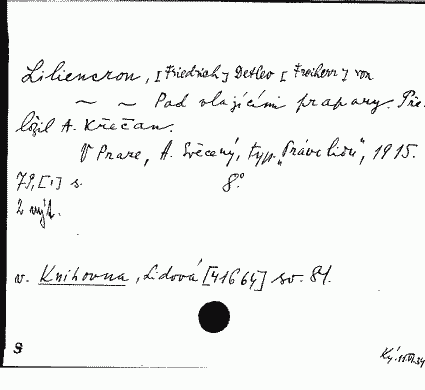 Liliencron, [Friedrich] Detlev [Freiherr] von
~ ~ Pod vlajícími prapory. Pře-
ložil A. Křečan.
V Praze, A. Svěcený, typ. „Práve lidu", 1915.
79, [1] s. 8°.
2 výt.
v. Knihovna, Lidová [41664] sv. 81.
S
Ký. 11.VI.54